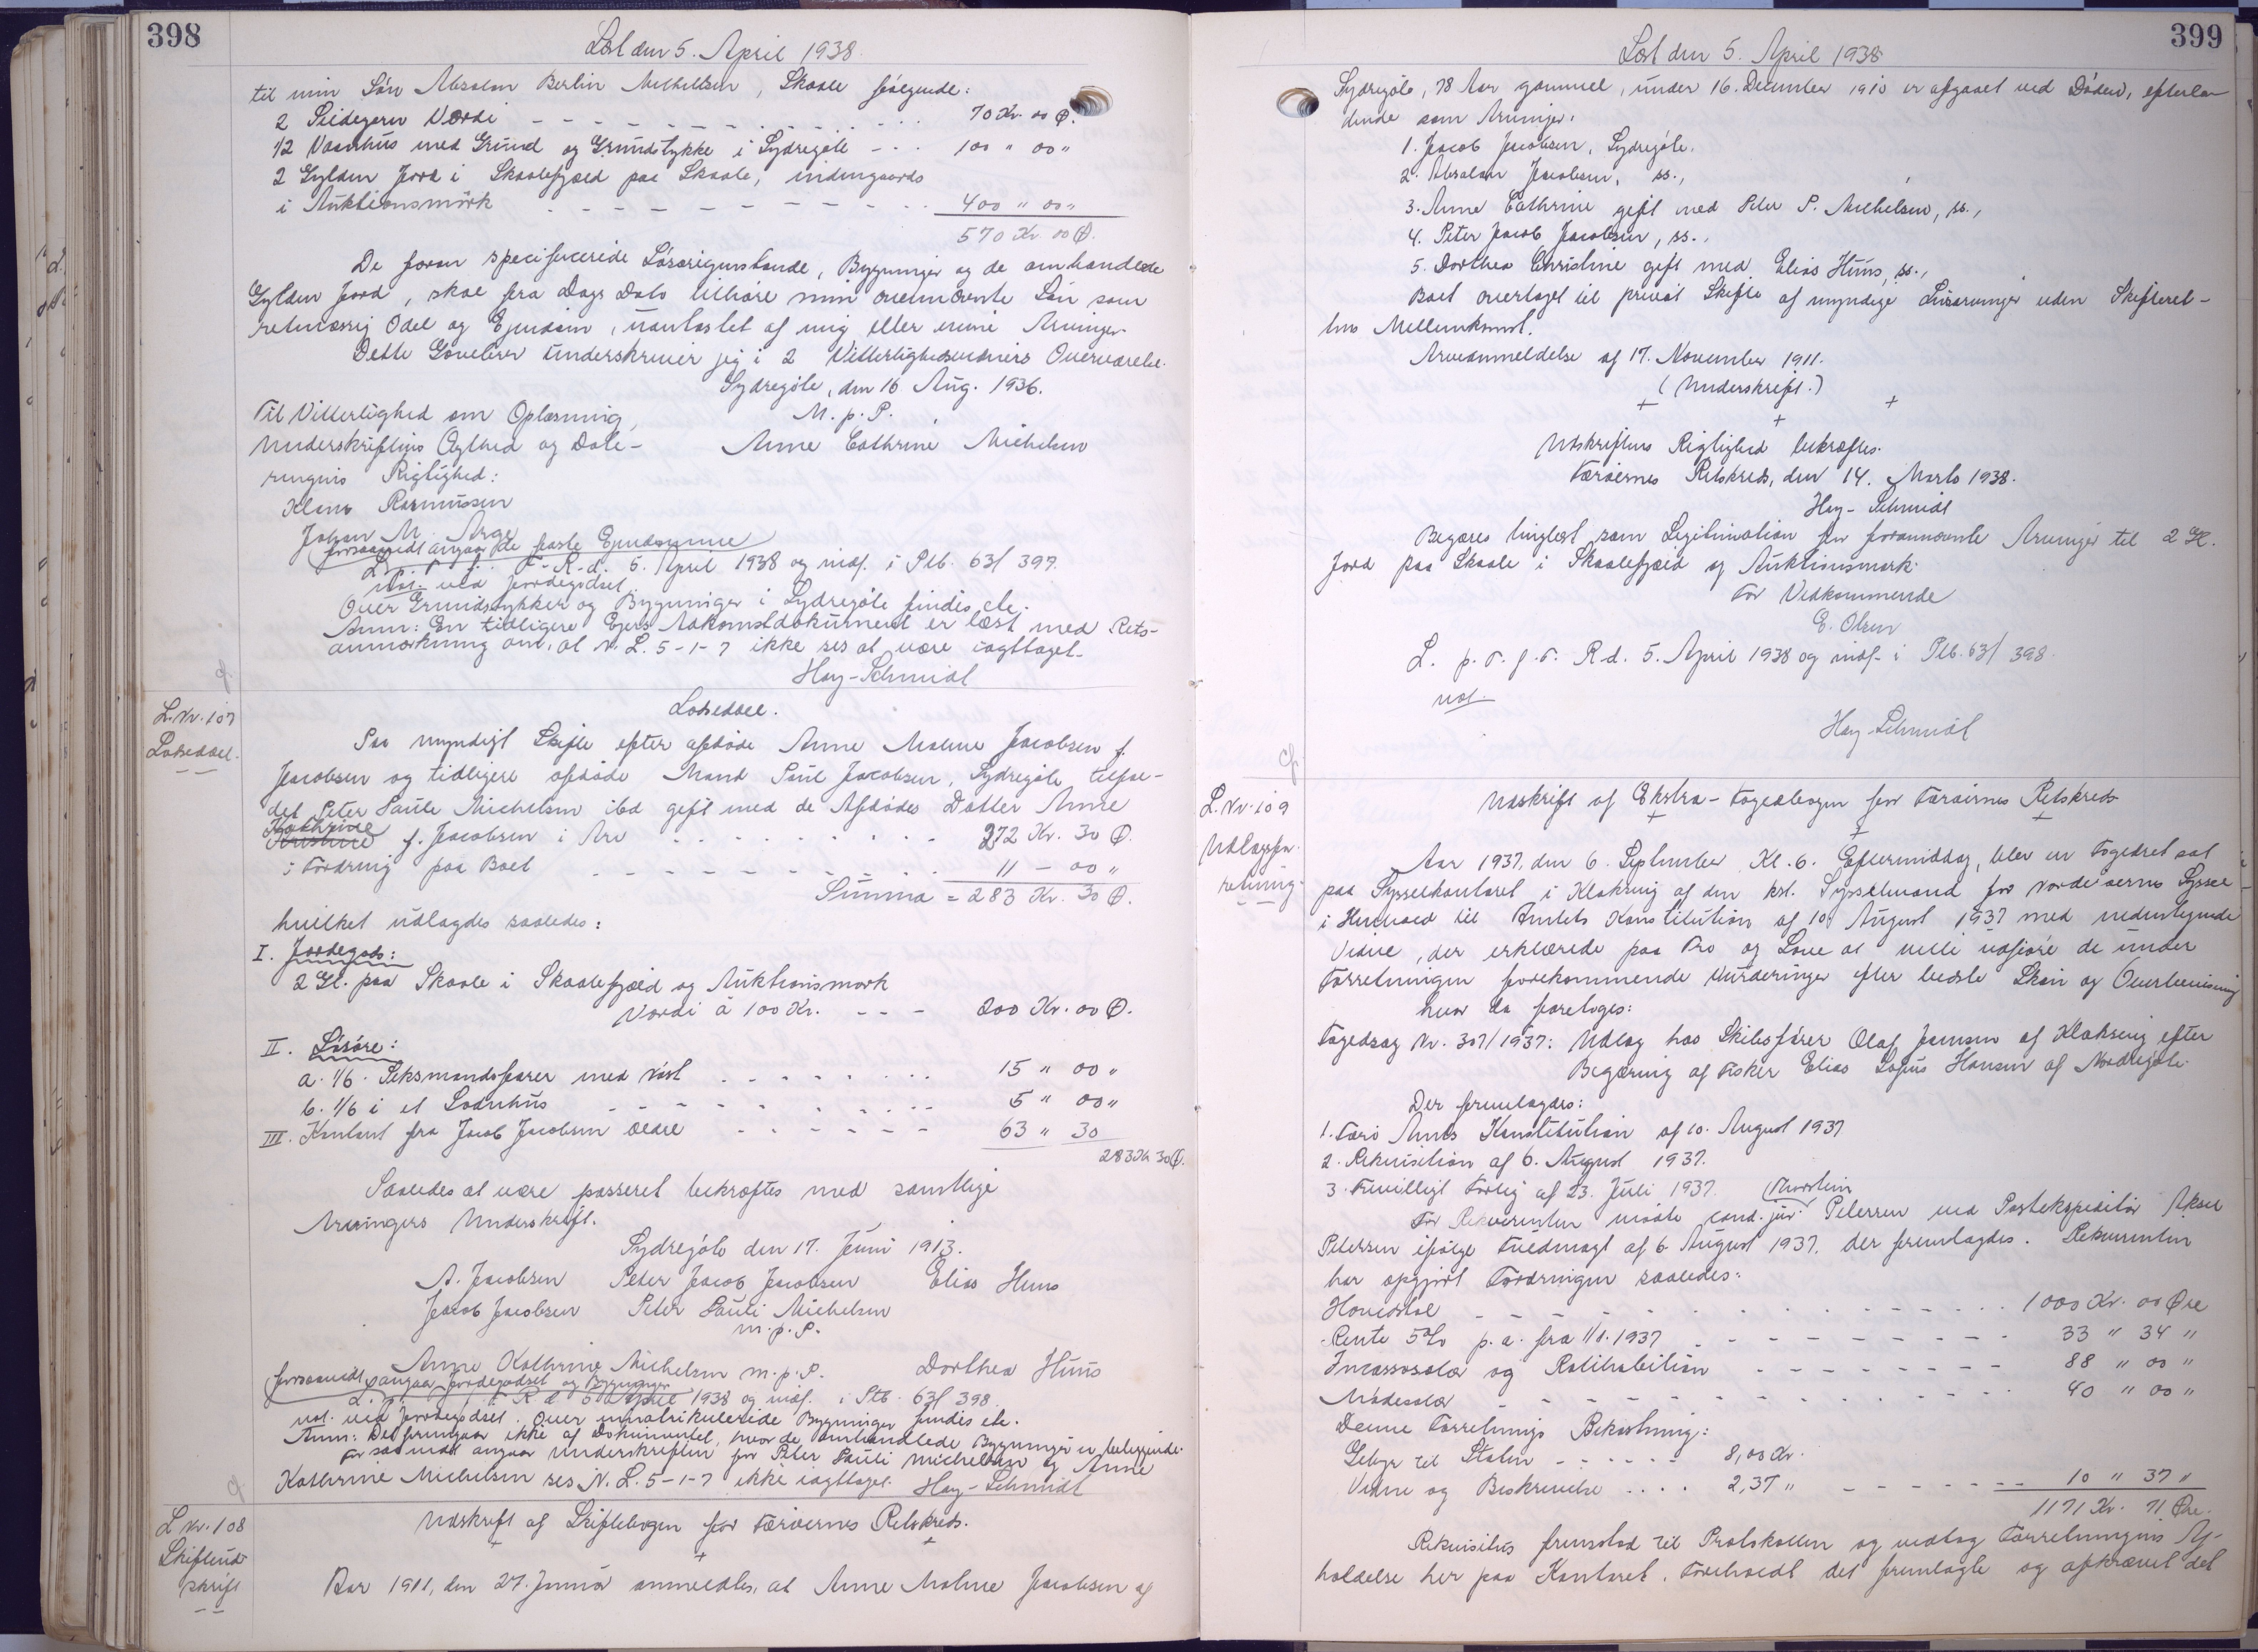 398
Læst den 5. April 1938.
til min Søn Absalon Berlin Michelsen, Skaale følgende:
2 Værdi - - - 70 Kr. 00 Ø.
1/2 Vaanhus med Grund og Grundstykke i Sydregøte - - - 100 " 00 "
2 Gylden Jord i Skaalefjæld paa Skaale, indengaards
i Auktionsmørk - - - 400 " 00 "
570 Kr. 00 Ø.
De foran specificerede Løsøregenstande, Bygninger og de omhandlede
Gylden Jord, skal fra Dags Dato tilhøre min ovennævnte Søn som
retmæssig Odel og Ejendom, uantastet af mig eller mine Arvinger.
Dette Gavebrev underskriver jeg i 2 Vitterlighedsvidners Overværelse.
Sydregøte, den 16 Aug. 1936.
Til Vitterlighed om Oplæsning, M. p. P.
Underskriftens Ægthed og Date- Anne Cathrine Michelsen
ringens Rigtighed:
Klans Rasmussen
Johan M. Arge
forsaavidt angaar de faste Ejendomme
L. p. T. f. F. R. d. 5. April 1938 og indf. i Ptb. 63/ 397.
not. ved Jordegodset.
Over Grundstykker og Bygninger i Sydregøte findes ete.
Anm: En tidligere Ejers Adkomstdokument er læst med Rets-
anmærkning om, at N. L. 5-1-7 ikke ses at være iagttaget.
Hay-Schmidt
L. Nr. 107
Lodseddel.
Lodseddel.
Paa myndigt Skifte efter afdøde Anne Malene Jacobsen f.
Jacobsen og tidligere afdøde Mand Poul Jacobsen, Sydregøte tilfal-
det Peter Paule Michelsen ibd gift med de Afdødes Datter Anne
Kathrine
Kristine f. Jacobsen i Arv - - - 272 Kr. 30 Ø.
i Fordring paa Boet - - - 11 - 00 "
Summa = 283 Kr. 30 Ø.
hvilket udlagdes saaledes:
I. Jordegods:
2 Gl. paa Skaale i Skaalefjæld og Auktionsmark
Værdi á 100 Kr. - - - 200 Kr. 00 Ø.
II. Løsøre:
a. 1/6 Seksmandsfarer med Nøst - - - 15 " 00 "
b. 1/6 i et Sodnhus - - - 5 " 00 "
III. Kontant fra Jacob Jacobsen ældre - - - 63 " 30
283 Kr 30 Ø.
Saaledes at være passeret bekræftes med samtlige
Arvingers Underskrift.
Sydregøte den 17. Juni 1913.
A. Jacobsen Peter Jacob Jacobsen Elias Huus
Jacob Jacobsen Peter Pauli Michelsen
m. p. P.
Anne Kathrine Michelsen m. p. P. Dorthea Huus
forsaavidt angaar Jordegodset og Bygninger
L. p. T. f. F. R. d. 5 April 1938 og indf. i Ptb. 63/ 398.
not. ved Jordegodset. Over umatrikulerede Bygninger findes ete.
Anm: Det fremgaar ikke af Dokumentet, hvor de omhandlede Bygninger er beliggende.
For saavidt angaar Underskriften for Peter Pauli Michelsen og Anne
Kathrine Michelsen ses N. L. 5-1-7 ikke iagttaget. Hay-Schmidt
L Nr. 108
Skifteud-
skrift
Udskrift af Skiftebogen for Færøernes Retskreds.
Aar 1911, den 27. Januar anmeldtes, at Anne Malene Jacobsen af
399
Læst den 5. April 1938
Sydregøte, 78 Aar gammel, under 16. December 1910 er afgaaet ved Døden, efterla-
dende som Arvinger:
1. Jacob Jacobsen, Sydregøte.
2. Absalon Jacobsen, ss.,
3. Anne Cathrine gift med Peter P. Michelsen, ss.,
4. Peter Jacob Jacobsen, ss.,
5. Dorthea Christine gift med Elias Huus, ss.,
Boet overtaget til privat Skifte af myndige Livsarvinger uden Skifteret-
tens Mellemkomst.
Arveanmeldelse af 17. November 1911.
(Underskrift.)
Udskriftens Rigtighed bekræftes.
Færøernes Retskreds, den 14. Marts 1938.
Hay-Schmidt
Begæres tinglæst som Legitimation for forannævnte Arvinger til 2 Gl.
Jord paa Skaale i Skaalefjæld og Auktionsmark.
For Vedkommende
E. Olsen
L. p. T. f. F. R. d. 5. April 1938 og indf. i Ptb. 63/ 398.
not.
Hay-Schmidt
L. Nr. 109
Udlagsfor-
retning.
Udskrift af Ekstra-Fogedbogen for Færøernes Retskreds
Aar 1937, den 6. September Kl. 6. Eftermiddag, blev en Fogedret sat
paa Sysselkontoret i Klaksvig af den kst. Sysselmand for Norderøernes Syssel
i Henhold til Amtets Konstitution af 10. August 1937 med nedenstaaende
Vidne, der erklærede paa Tro og Love at ville udføre de under
Forretningen forekommende Vurderinger efter bedste Skøn og Overbevisning
hvor da foretoges:
Fogedsag Nr. 307/1937: Udlæg hos Skibsfører Olaf Joensen af Klaksvig efter
Begæring af Fisker Elias Sofus Hansen af Nordregøte.
Der fremlagdes:
1. Færø Amts Konstitution af 10. August 1937
2. Rekvisition af 6. August 1937.
3. Frivilligt Forlig af 23. Juli 1937. Thorstein
For Rekvirenten mødte cand. jur. Petersen ved Postekspeditør Aksel
Petersen ifølge Fuldmagt af 6 August 1937, der fremlagdes. Rekvirenten
har opgjort Fordringen saaledes:
Hovedstol - - - 1000 Kr. 00 Øre
Rente 5% p. a. fra 1/1.1937 - - - 33 " 34 "
Incassosalær og Ratihabition - - - 88 " 00 "
Mødesalær - - - 40 " 00 "
Denne Forretnings Bekostning:
Gebyr til Staten - - - 8,00 Kr.
Vidne og Beskrivelse - - - 2,37 " - - - 10 " 37 "
1171 Kr. 71 Øre.
Rekvisitus fremstod til Protokollen og vedtog Forretningens Af-
holdelse her paa Kontoret. Foreholdt det fremlagte og afkrævet det